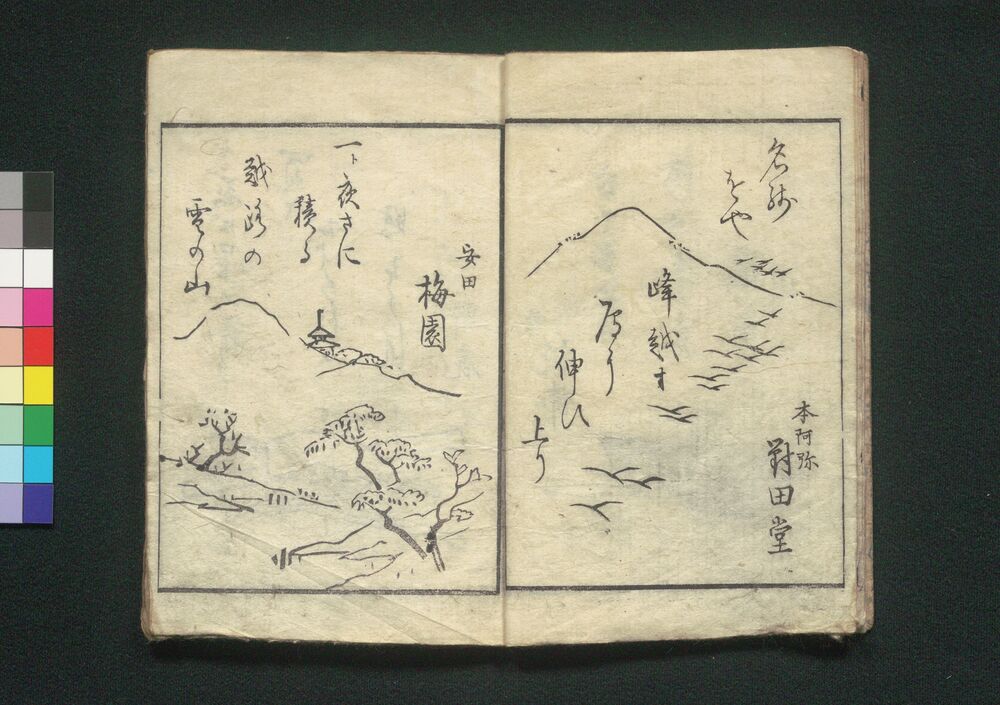 名残
をや
峰越す
伸ひ
上り
本阿弥
田堂
安田
梅園
一ト夜さに
積る
越路の
雪の山